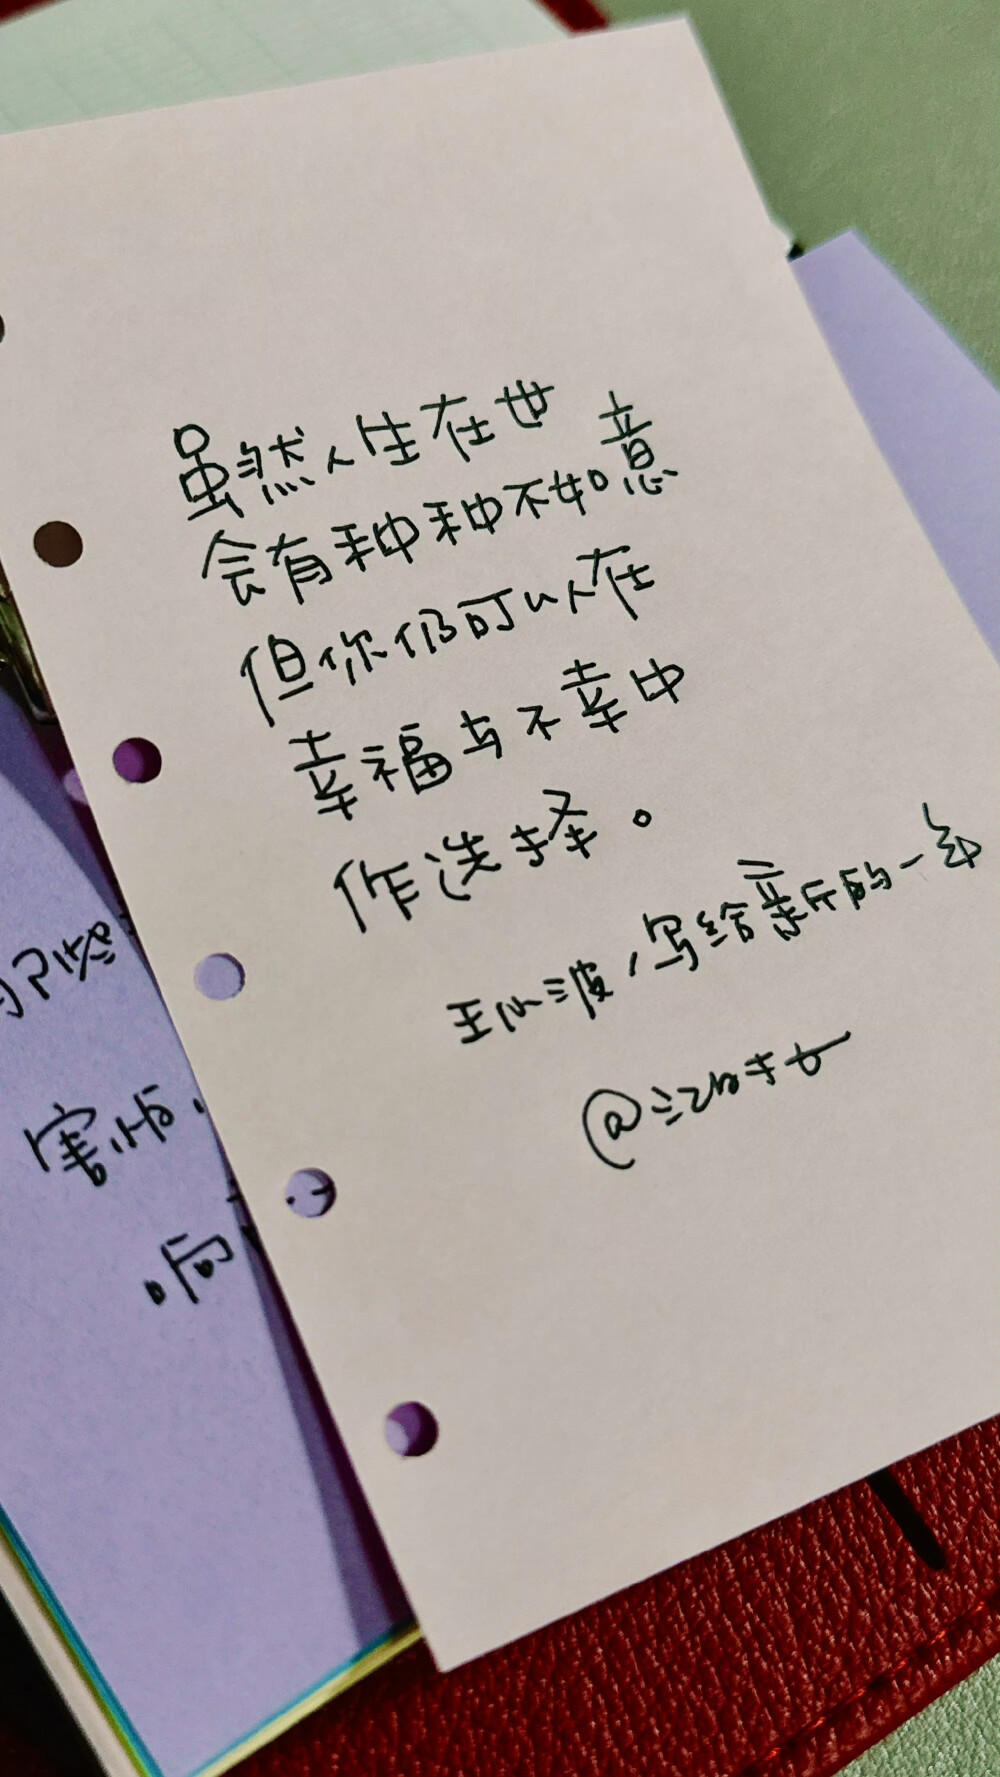 虽然人生在世
会有种种不如意
但你仍可以在
幸福与不幸中
作选择。
王小波,写给新的一年
害怕,
响